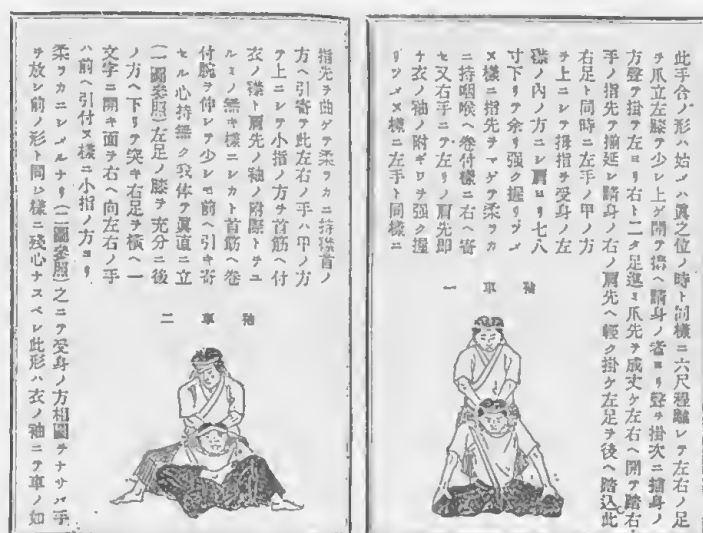 此手合ノ形ハ始メハ眞之位ノ時ト同樣ニ六尺程離レテ左右ノ足
ヲ爪立左膝ヲ少シ上ゲ開テ搆ヘ身ノ者ヨリ聲ヲ掛次ニ捕身ノ
方聲ヲ掛テ左ヨリ右ト二タ足進ミ爪先ヲ成丈ケ左右ヘ開テ踏右
手ノ指先ヲ揃延シ身ノ右ノ肩先ヘ輕ク掛ケ左足ヲ後ヘ踏込此
右足ト同時ニ左手ノ甲ノ方
ヲ上ニシテ拇指ヲ受身ノ左
襟ノ内ノ方ニシ肩ヨリ七八
寸下リテ余リ强ク握リツメ
ヌ樣ニ指先ヲマゲテ柔ラカ
ニ持咽喉ヘ卷付樣ニ右ヘ寄
セ又右手ニテ左リノ肩先即
チ衣ノ袖ノ附ギワヲ强ク握
リツメヌ樣ニ左手ト同樣ニ
袖車一
指先ヲ曲ゲテ柔ラカニ持首ノ
方ヘ引寄此左右ノ手ハ甲ノ方
ヲ上ニシテ小指ノ方ヲ首筋ヘ付
衣ノ襟ト肩先ノ袖ノ附際トテユ
ルミノ無キ樣ニシカト首筋ヘ卷
付腕ヲ伸シテ少シモ前ヘ引キ寄
セル心持無ク我体ヲ眞直ニ立
(一圖參照)左足ノ膝ヲ充分ニ後
ノ方ヘ下リテ突キ右足ヲ橫ヘ一
文字ニ開キ面ヲ右ヘ向左右ノ手
ハ前ヘ引付ヌ樣ニ小指ノ方ヨリ
柔ラカニシメルナリ(二圖參照)之ニテ受身ノ方相圖ヲナサバ手
ヲ放シ前ノ形ト同ジ樣ニ殘心ナスベシ此形ハ衣ノ袖ニテ車ノ如
袖車二